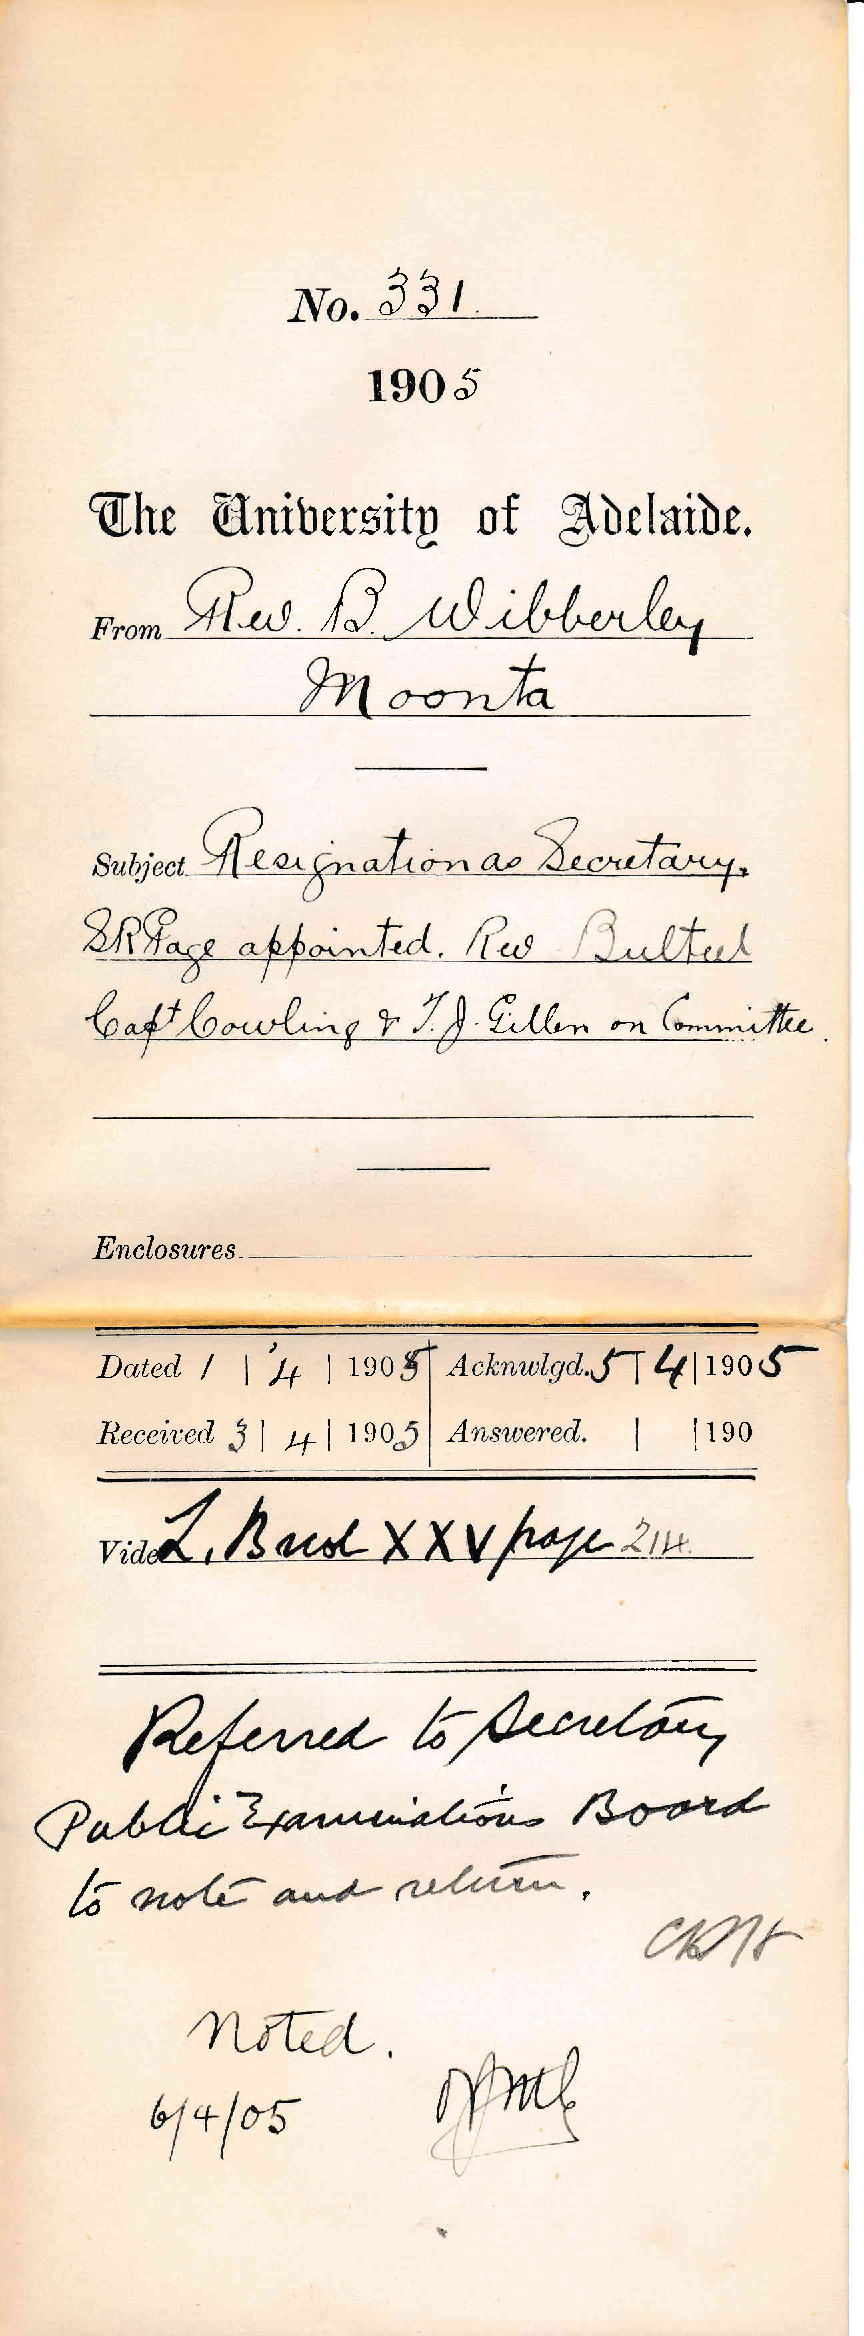 No. 331.
1905
The University of Adelaide.
From Rev. B. Wibberley
Moonta
Subject Resignation as Secretary.
S R Page appointed. Rev Bulteel
Capt Cowling & T. J. Gillen on Committee.
Enclosures
Dated 1 | 4 | 1905 Acknwlgd. 5 | 4 | 1905
Received 3 | 4 | 1905 Answered. | | 190
Vide L. Book XXV page 214.
Referred to Secretary
Public Examinations Board
to note and return.
Noted.
6/4/05